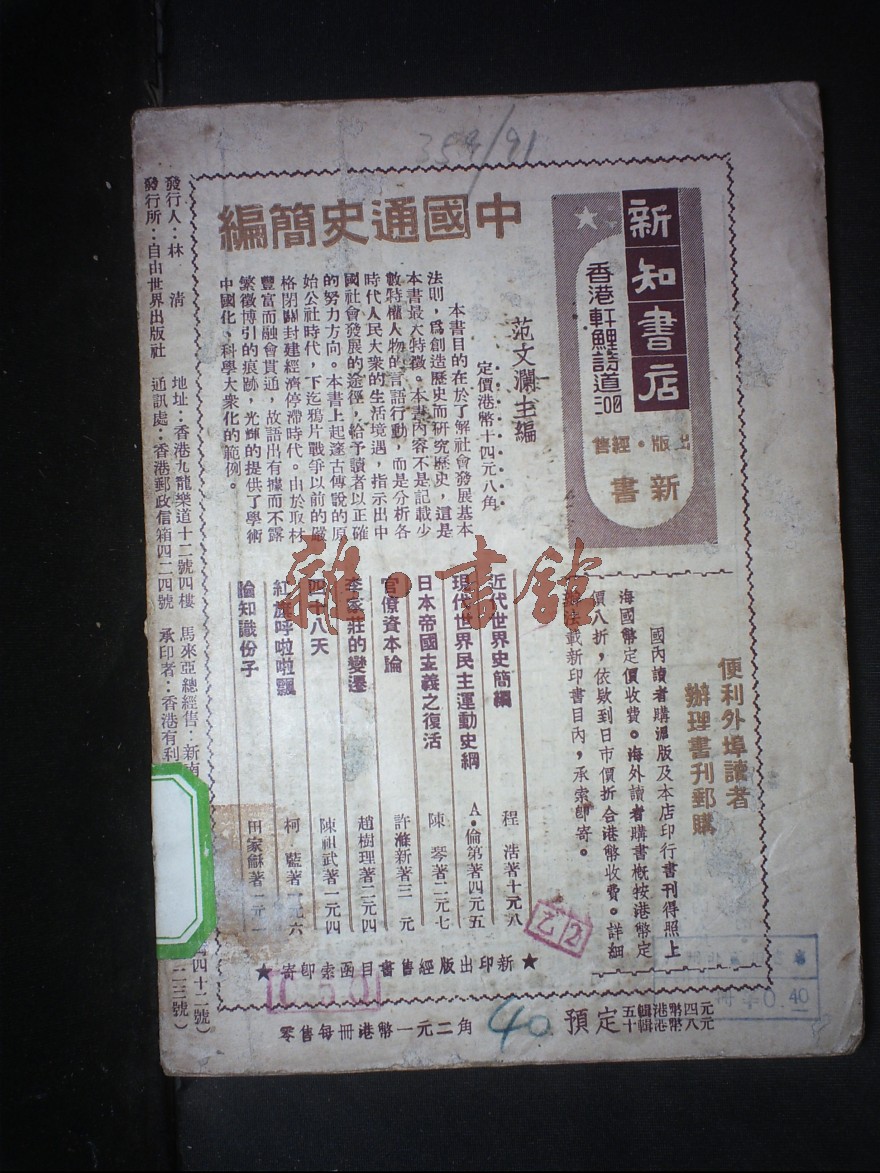 359/91
新知書店
香港軒鯉詩道三00
出版·經售
新書
便利外埠讀者
辦理書刊郵購
國內讀者購滬版及本店印行書刊得照上
海國幣定價收費。海外讀者購書概按港幣定
價八折,依欵到日市價折合港幣收費。詳細
辦法載新印書目內,承索卽寄。
中國通史簡編
范文瀾主編
定價港幣十四元八角
本書目的在於了解社會發展基本
法則,爲創造歷史而研究歷史,這是
本書最大特徵。本書內容不是記載少
數特權人物的言語行動,而是分析各
時代人民大衆的生活境遇,指示出中
國社會發展的途徑,給予讀者以正確
的努力方向。本書上起遂古傳說的原
始公社時代,下迄鴉片戰爭以前的嚴
格閉關封建經濟停滯時代。由於取材
豐富而融會貫通,故語出有據而不露
繁徵博引的痕跡,光輝的提供了學術
中國化、科學大衆化的範例。
近代世界史簡編 程浩著十元八
現代世界民主運動史綱 A·倫第著四元五
日本帝國主義之復活 陳琴著二元七
官僚資本論 許滌新著三元
李家莊的變遷 趙樹理著二元四
四十八天 陳祖武著一元四
紅旗呼啦啦飄 柯藍著一元六
論知識份子 田家龢著一元一
★新印出版經售書目函索卽寄★
發行人:林清
發行所:自由世界出版社
地址:香港九龍樂道十二號四樓
通訊處:香港郵政信箱四二四號
馬來亞總經售:新南
承印者:香港有利
四十二號)
二三號)
零售每冊港幣一元二角
40
預定
五輯港幣四元
十輯港幣八元
乙2
0.40
雜·書館